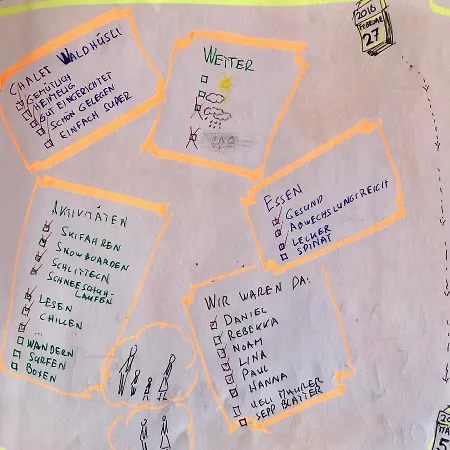 2016
FEBRUAR
27
CHALET WALDHÜSLI
GEMÜTLICH
HEIMELIG
GUT EINGERICHTET
SCHÖN GELEGEN
EINFACH SUPER
WETTER
ESSEN
GESUND
ABWECHSLUNGSREICH
LECKER
SPINAT
AKTIVITÄTEN
SKIFAHREN
SNOWBOARDEN
SCHLITTELN
SCHNEESCHUH-
LAUFEN
LESEN
CHILLEN
...
WANDERN
SURFEN
BOSEN
WIR WAREN DA:
DANIEL
REBEKKA
NOAH
LINA
PAUL
HANNA
UELI MAURER
SEPP BLATTER
20
MÄ
5